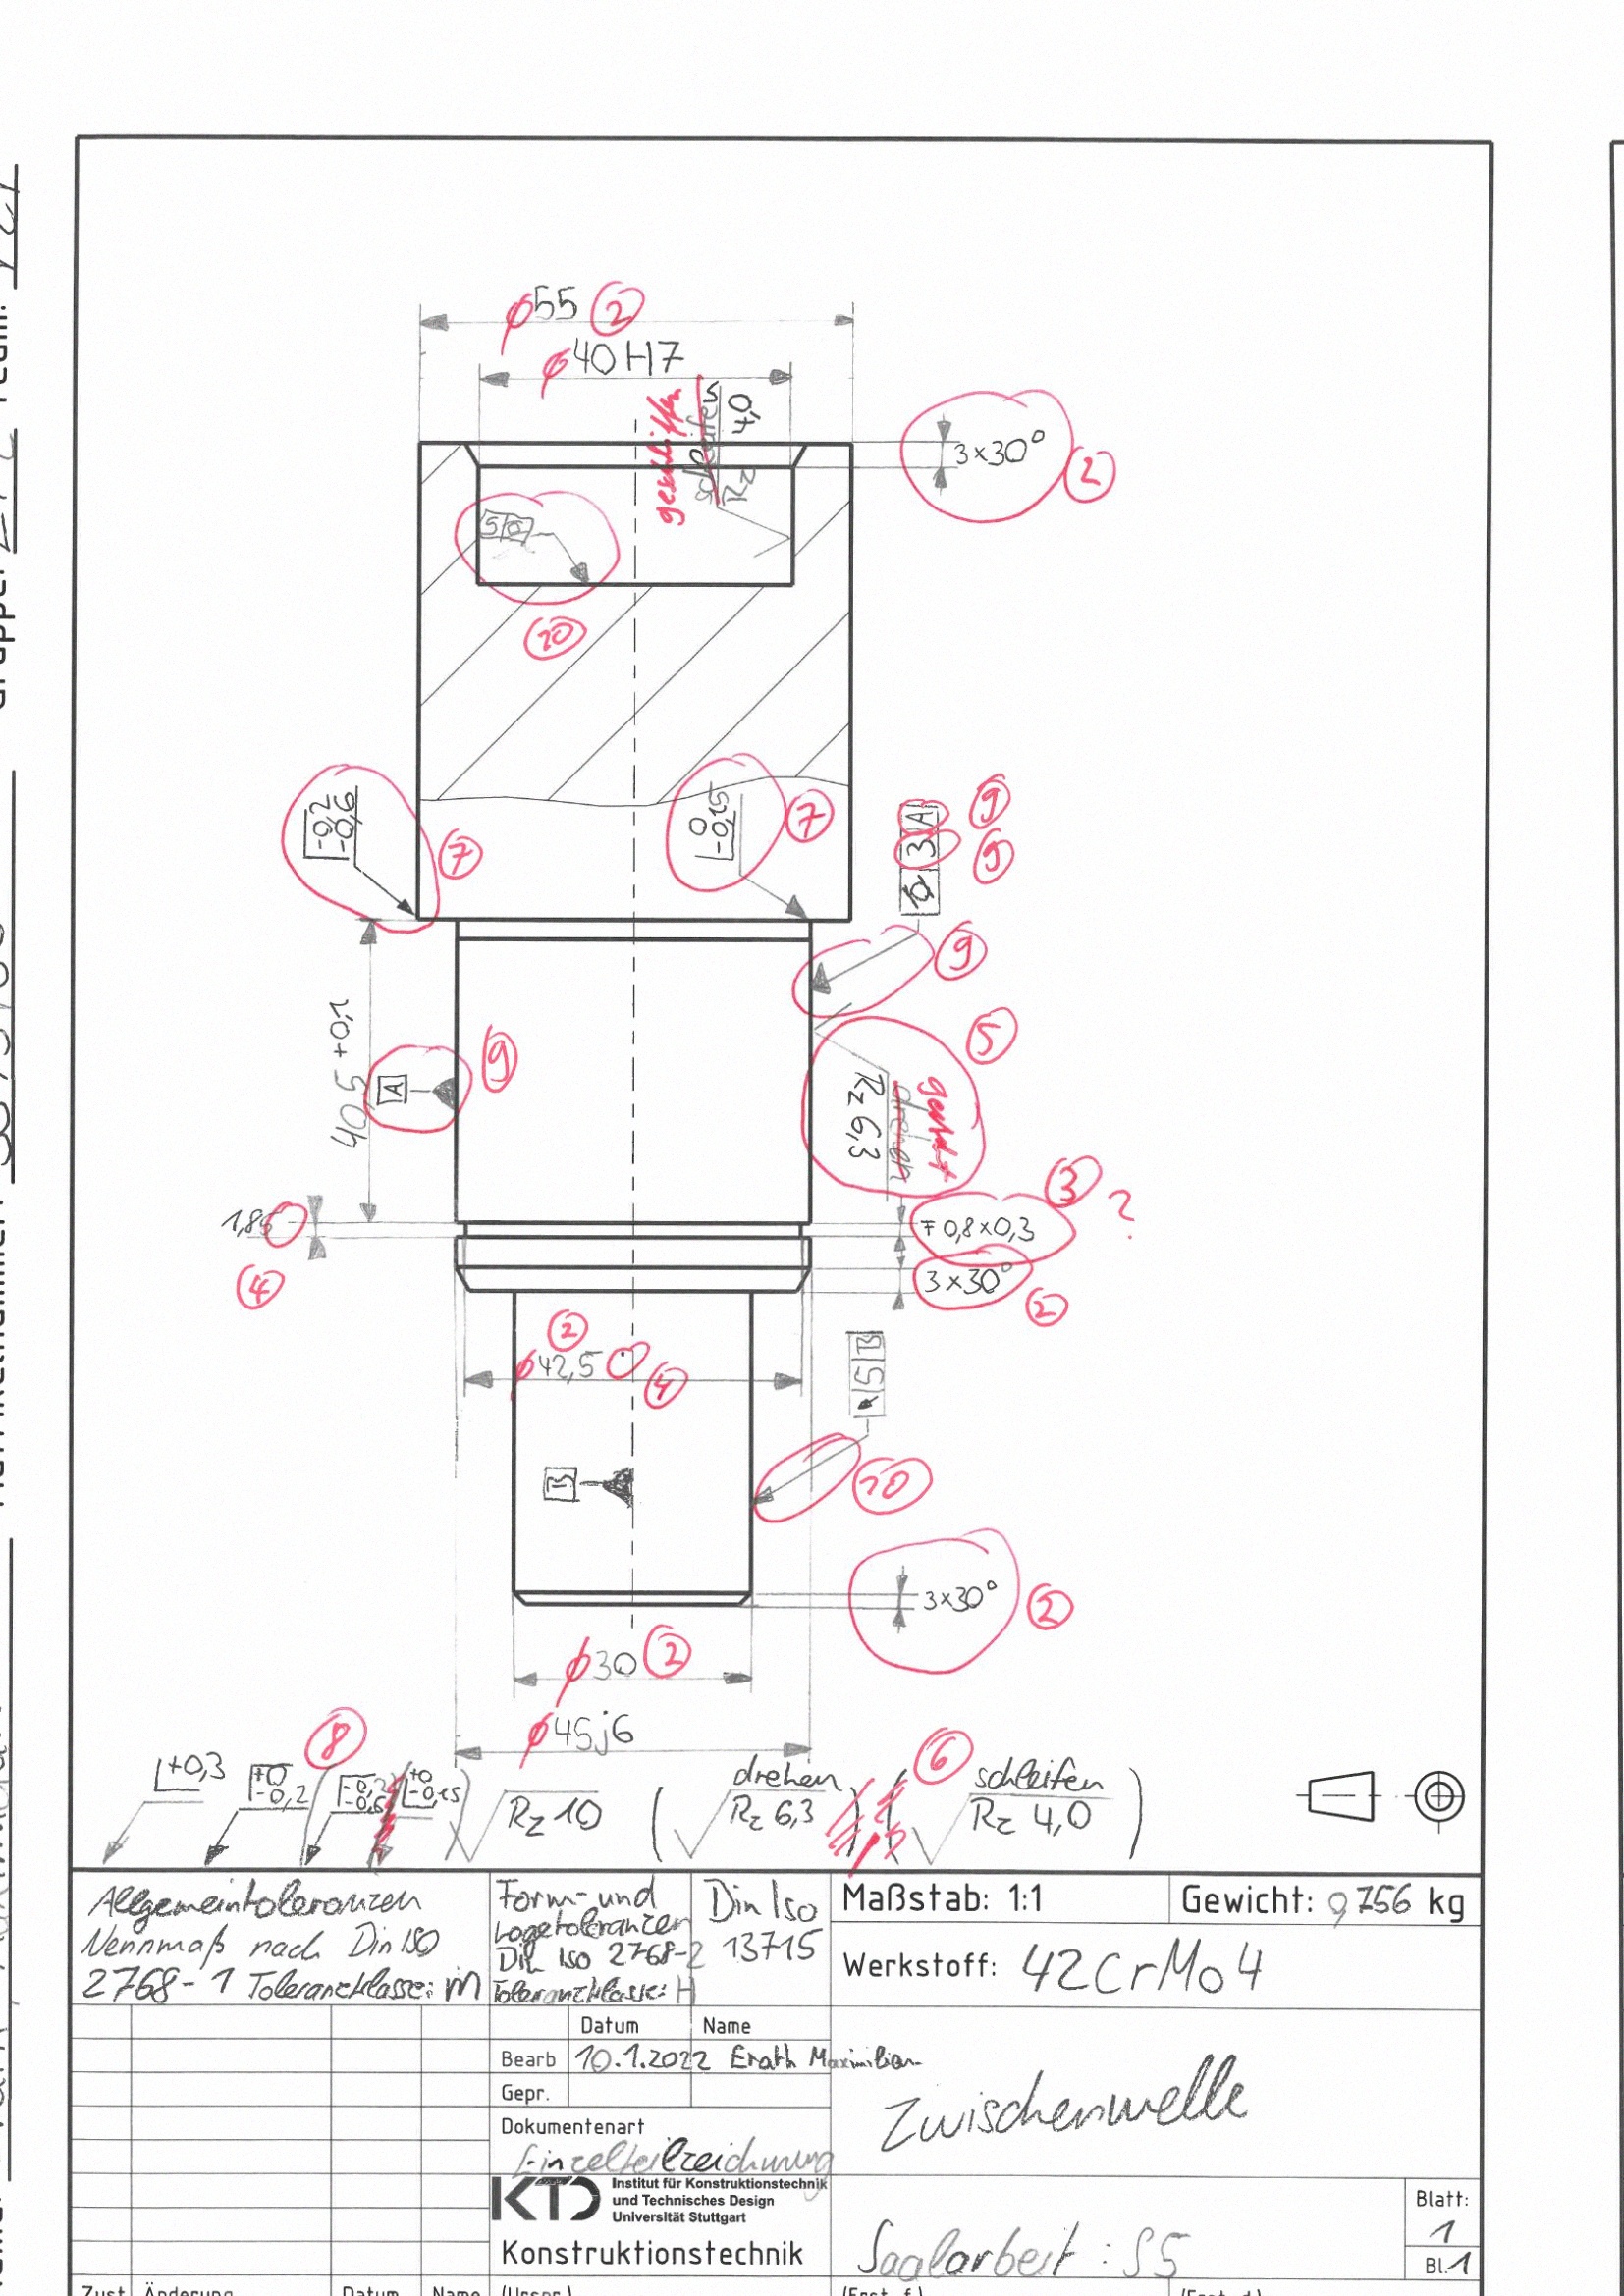 ⌀55 ②
⌀40 H7
geschliffen
schleifen
Rz 4,0
3×30° ②
⑩
-0,2
-0,6
⑦
-0
-0,15
⑦
3 A
⑨
⑨
⑨
40,5 +0,1
A
⑨
⑤
Rz 6,3
drehen
gedreht
1,85
④
∓ 0,8×0,3
③ ?
3×30° ②
②
⌀42,5
④
5 B
B
⑩
3×30° ②
⌀30 ②
⌀45j6
⑧
+0,3
+0
-0,2
-0,2
-0,6
+0
-0,15
Rz 10
drehen
Rz 6,3
⑥
schleifen
Rz 4,0
Allgemeintoleranzen
Nennmaß nach Din ISO
2768-1 Toleranzklasse: m
Form- und
Lagetoleranzen
Din Iso 2768-2
Toleranzklasse: H
Din Iso
13715
Maßstab: 1:1
Gewicht: 0,756 kg
Werkstoff: 42CrMo4
Datum Name
Bearb 10.1.2022 Erath Maximilian
Gepr.
Dokumentenart
Einzelteilzeichnung
Zwischenwelle
KTD
Institut für Konstruktionstechnik
und Technisches Design
Universität Stuttgart
Konstruktionstechnik
Saalarbeit: S5
Blatt:
1
Bl.1
Zust Änderung Datum Name (Urspr.) (Erst. f.) (Erst. d.)